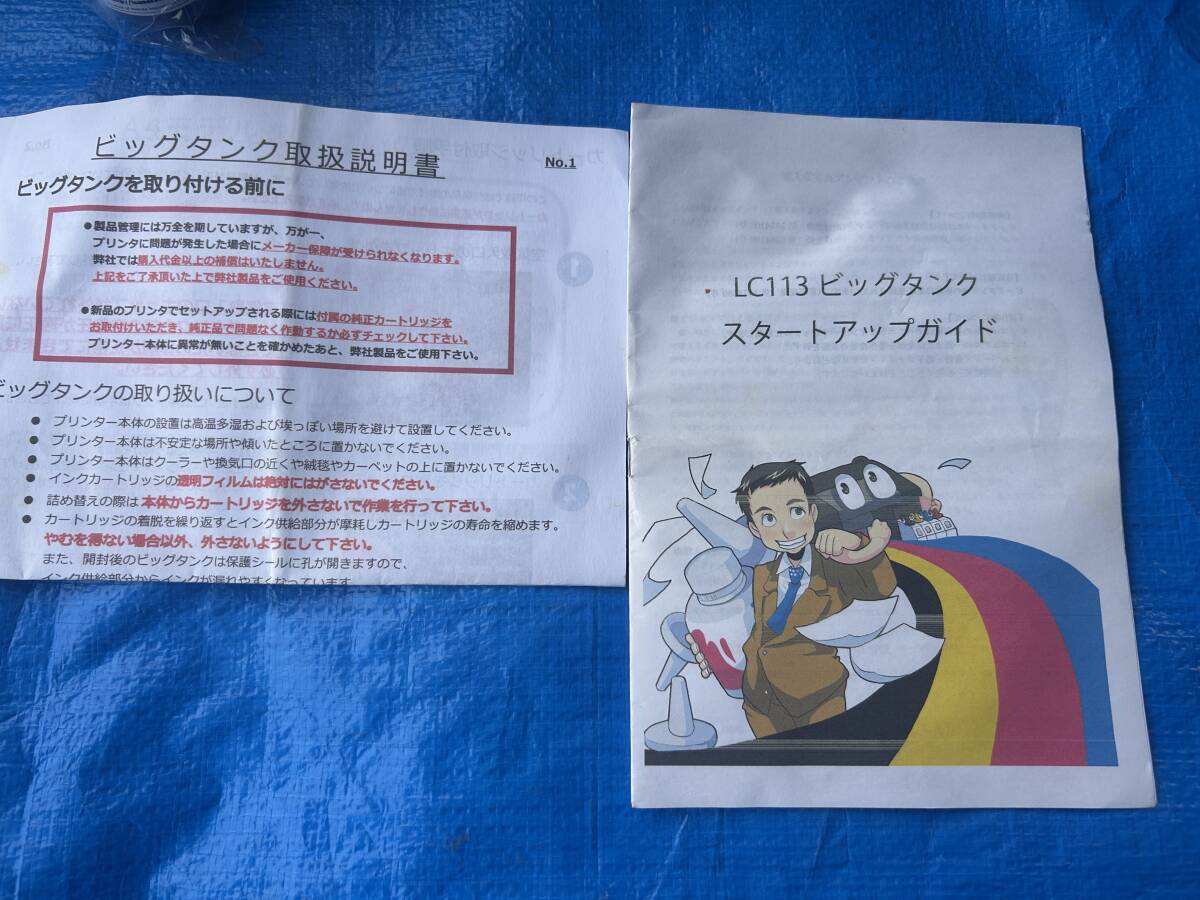 ビッグタンク取扱説明書
No.1
ビッグタンクを取り付ける前に
●製品管理には万全を期していますが、万が一、
プリンタに問題が発生した場合にメーカー保障が受けられなくなります。
弊社では購入代金以上の補償はいたしません。
上記をご了承頂いた上で弊社製品をご使用ください。
●新品のプリンタでセットアップされる際には付属の純正カートリッジを
お取付けいただき、純正品で問題なく作動するか必ずチェックして下さい。
プリンター本体に異常が無いことを確かめたあと、弊社製品をご使用下さい。
ビッグタンクの取り扱いについて
● プリンター本体の設置は高温多湿および埃っぽい場所を避けて設置してください。
● プリンター本体は不安定な場所や傾いたところに置かないでください。
● プリンター本体はクーラーや換気口の近くや絨毯やカーペットの上に置かないでください。
● インクカートリッジの透明フィルムは絶対にはがさないでください。
● 詰め替えの際は本体からカートリッジを外さないで作業を行って下さい。
● カートリッジの着脱を繰り返すとインク供給部分が摩耗しカートリッジの寿命を縮めます。
やむを得ない場合以外、外さないようにして下さい。
また、開封後のビッグタンクは保護シールに孔が開きますので、
インク供給部分からインクが漏れやすくなっています
LC113 ビッグタンク
スタートアップガイド